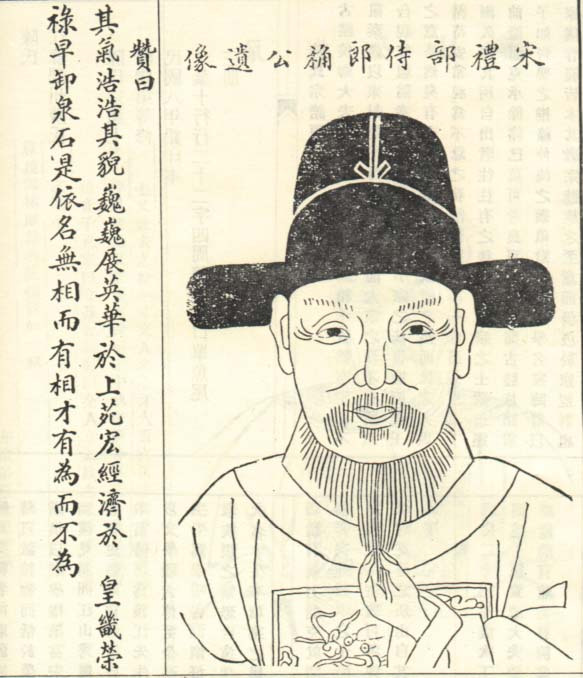 宋禮部侍郎公遺像
贊曰
其氣浩浩其貌巍巍展英華於上苑宏經濟於 皇畿榮
祿早卸泉石是依名無相而有相才有為而不為